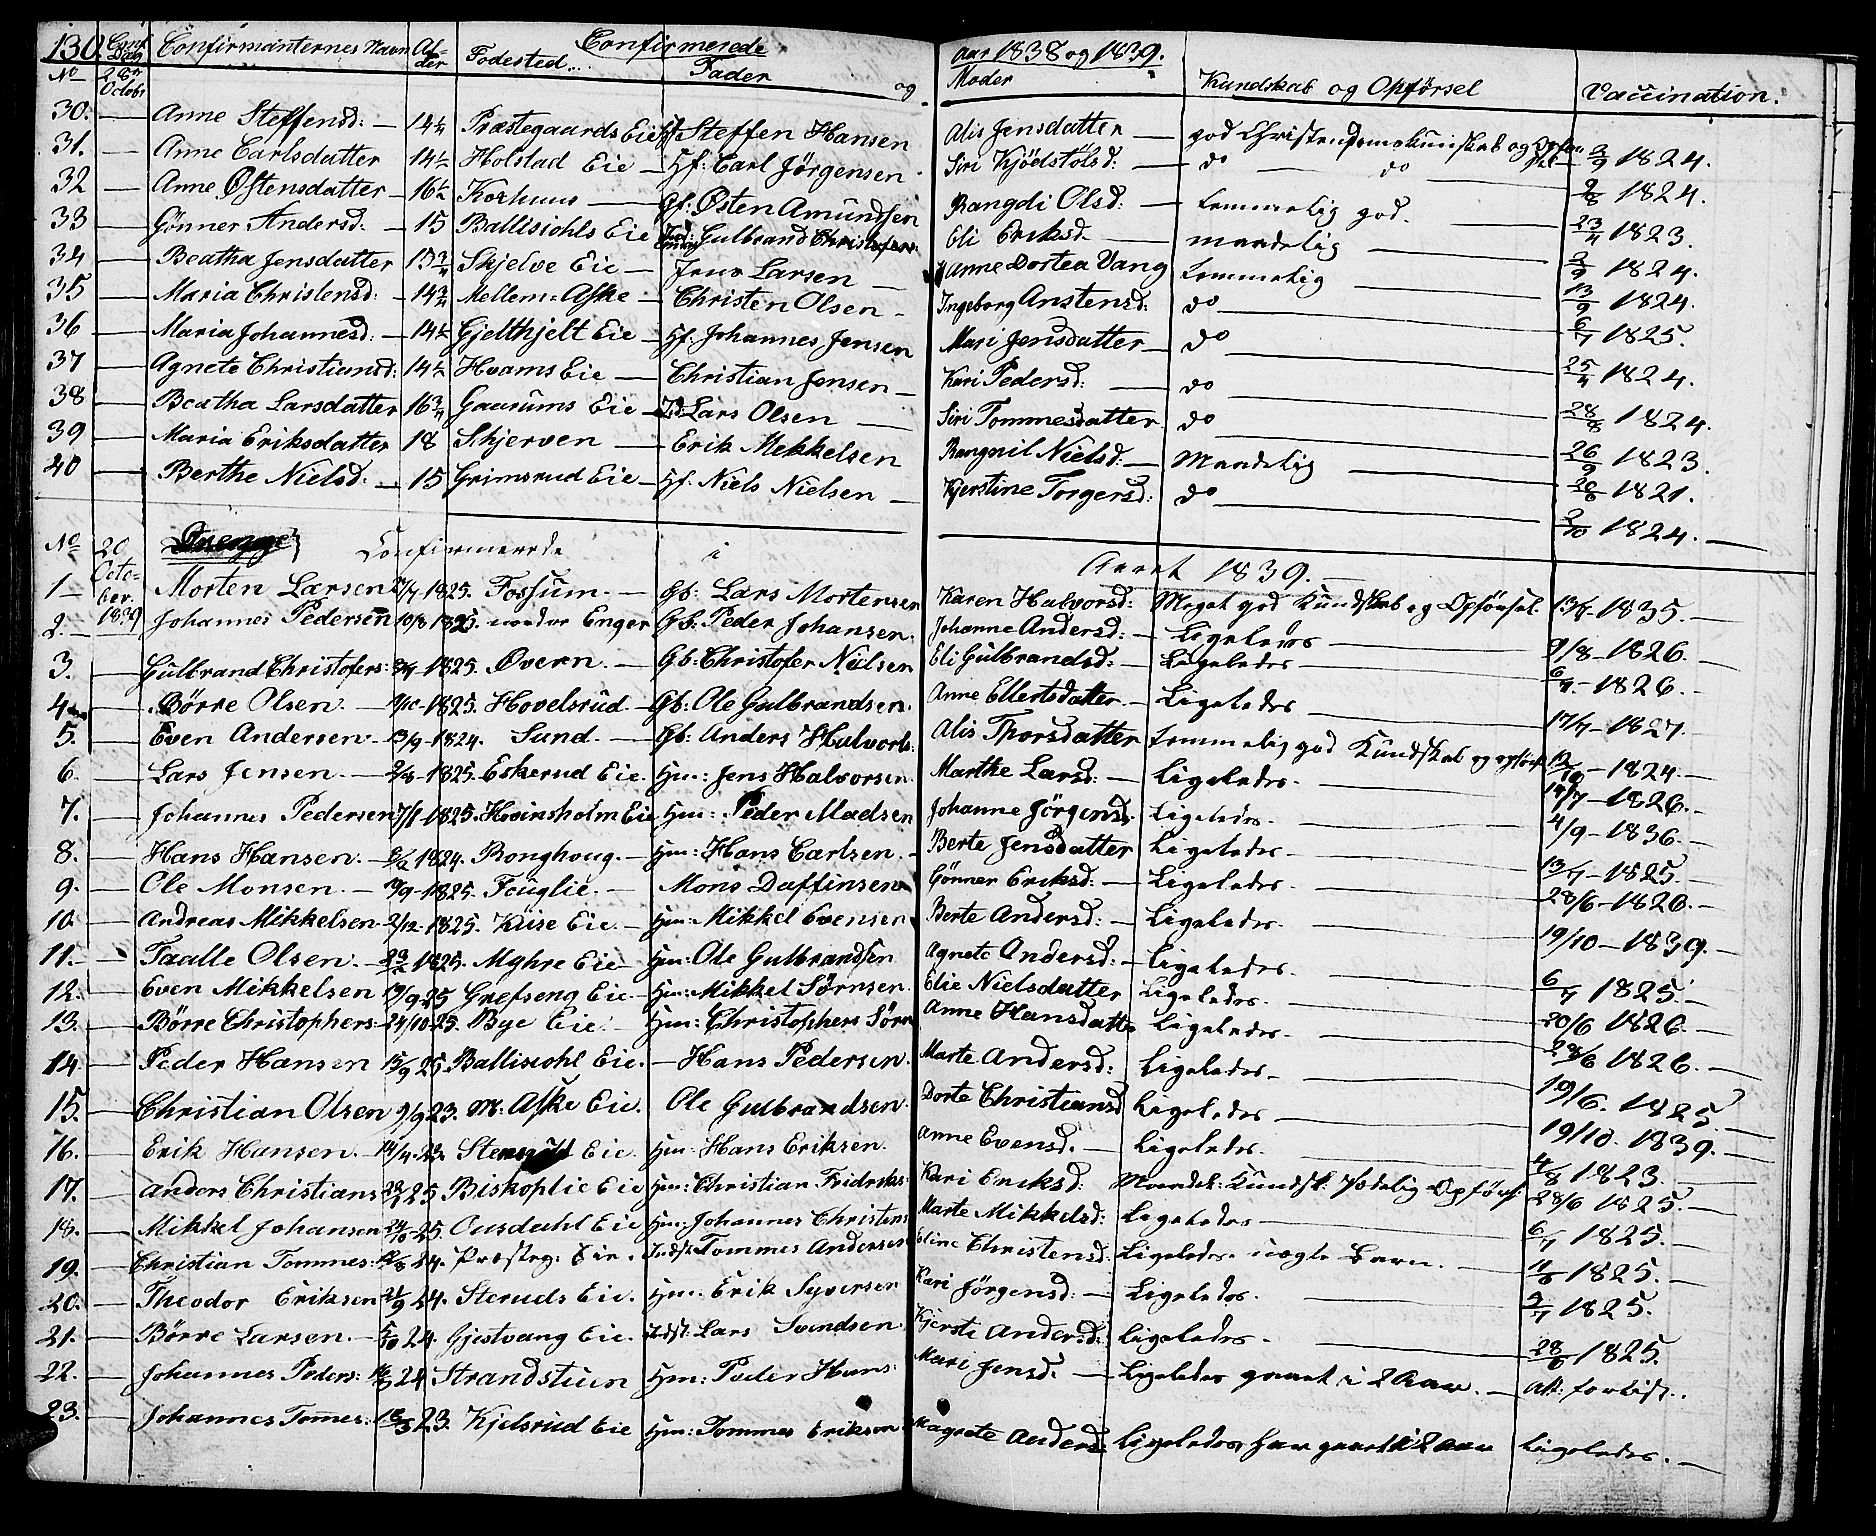 130. Conf. Dag Confirmanternes Navn Al- der Födested. Confirmerede Fader og Aar 1838 og 1839. Moder Kundskab og Opförsel Vaccination.
No 28de Octobr
30. Anne Steffensd: 14½ Præstegaards Eie Hf Steffen Hansen Alis Jensdatter god Christendomskundskab og Opför 3/9 1824.
31. Anne Carlsdatter 14½ Holstad Eie Hf: Carl Jörgensen Siri Kjödstölsd: do do 2/8 1824.
32 Anne Østensdatter 16½ Korhuus Gf: Østen Amundsen Rangdi Olsd: temmelig god. 23/4 1823.
33 Gönner Andersd. 15 Ballisiohls Eie Gulbrand Christofers Eli Eriksd. maadelig 2/9 1824.
34 Beatha Jensdatter 13¾ Skjelve Eie Jens Larsen Anne Dortea Vang temmelig 13/9 1824.
35 Maria Christensd: 14¾ Mellem-Aske Christen Olsen Ingeborg Anstensd: do 6/7 1825.
36 Maria Johannesd: 14½ Gjelthjelt Eie Hf: Johannes Jensen Mari Jensdatter do 25/4 1824.
37 Agnete Christiansd: 14½ Hvams Eie Christian Jensen Kari Pedersd: do 28/8 1824.
38 Beatha Larsdatter 16¾ Gaarums Eie Lars Olsen Siri Tommesdatter do 26/9 1823.
39 Maria Eriksdatter 18 Skjerven Erik Mekkelsen Rangnil Nielsd: Maadelig 20/8 1821.
40 Berthe Nielsd. 15 Grimsrud Eie Hf: Niels Nielsen Kjerstine Torgersd: do 2/10 1824.
No 20 Octo- ber. 1839 Drenge Confirmeerde i Aaret 1839.
1 Morten Larsen 1825. Fossum. Gb: Lars Mortensen Karen Halvorsd: Meget god Kundskab og Opförsel 1835.
2. Johannes Pedersen 10/8 1825. nordre Enger Gb: Peder Johansen. Johanne Andersd: Ligeledes 9/8 - 1826.
3. Gulbrand Christofers: 1825. Overn. Gb: Christofer Nielsen Eli Gulbrandsd: Ligeledes 6/7 - 1826.
4 Börre Olsen. 1825. Hovelsrud. Gb: Ole Gulbrandsen. Anne Ellertsdatter. Ligeledes 17/7 - 1827.
5. Even Andersen 13/9 - 1824. Sund. Gb: Anders Halvors: Alis Thorsdatter temmelig god Kundskab og opförs: 1824.
6. Lars Jensen. 2/8 - 1825. Eskerud Eie. Hm: Jens Halvorsen. Marthe Larsd: Ligeledes. 1826.
7. Johannes Pedersen 7/1 - 1825. Hovinsholm Eie Hm: Peder Madsen Johanne Jörgensd: Ligeledes. 4/9 - 1836.
8. Hans Hansen. 1824. Ronghoug. Hm: Hans Carlsen. Berte Jensdatter Ligeledes. 13/7 - 1825.
9. Ole Monsen. 1825. Fouglie. Mons Daffinsen Gönner Eriksd: Ligeledes. 28/6 - 1826.
10. Andreas Mikkelsen 2/12 - 1825. Kiise Eie. Hm: Mikkel Evensen Berte Andersd: Ligeledes. 19/10 - 1839.
11. Taalle Olsen. 1825. Myhre Eie Hm: Ole Gulbrandsen Agnete Andersd: Ligeledes. 6/7 1825.
12. Even Mikkelsen 25 Grefseng Eie. Hm: Mikkel Sörnsen. Elie Nielsdatter Ligeledes. 20/6 1826.
13. Börre Christophers 24/10 - 25. Bye Eie. Hm: Christophers Sörn Anne Hansdatter Ligeledes. 28/6 1826.
14. Peder Hansen 15/9 25. Ballisiohl Eie. Hans Pedersen. Marte Andersd: Ligeledes. 19/6. 1825
15. Christian Olsen 9/9 23. M: Aske Eie. Ole Gulbrandsen. Dorte Christiansd Ligeledes. 19/10. 1839.
16. Erik Hansen. 23. Eie. Hm: Hans Eriksen. Anne Evensd. Ligeledes. 4/8 1823.
17. Anders Christians 25 Biskoplie Eie Hm: Christian Fridriks: Kari Eriksd: Maadel: Kundsk: sædelig Opförs: 28/6 1825.
18. Mikkel Johansen 25. Ousdahl Eie Hm: Johannes Christens Marte Mikkelsd: Ligeledes 6/7 1825.
19. Christian Tommes: 24. Præsteg: Eie. Indst: Tommes Andersen Eline Christensd: Ligeledes. uægte Barn. 11/8 1825.
20. Theodor Eriksen 21/9 24. Steruds Eie. Hm: Erik Syversen Kari Jörgensd: Ligeledes. 1825.
21. Börre Larsen. 5/10 24. Gjestvang Eie. Indst: Lars Svendsen Kjersti Andersd: Ligeledes. 28/6 1825.
22. Johannes Peders: 24 Strandstuen Hm: Peder Hans: Mari Jensd. Ligeledes gaaet i 2 Aar. Att: forlist.
23. Johannes Tomes: 23. Kjelsrud Eie Hm: Tommes Eriksen Magrete Andersd Ligeledes, har gaaet i 2 Aar Ligeledes.